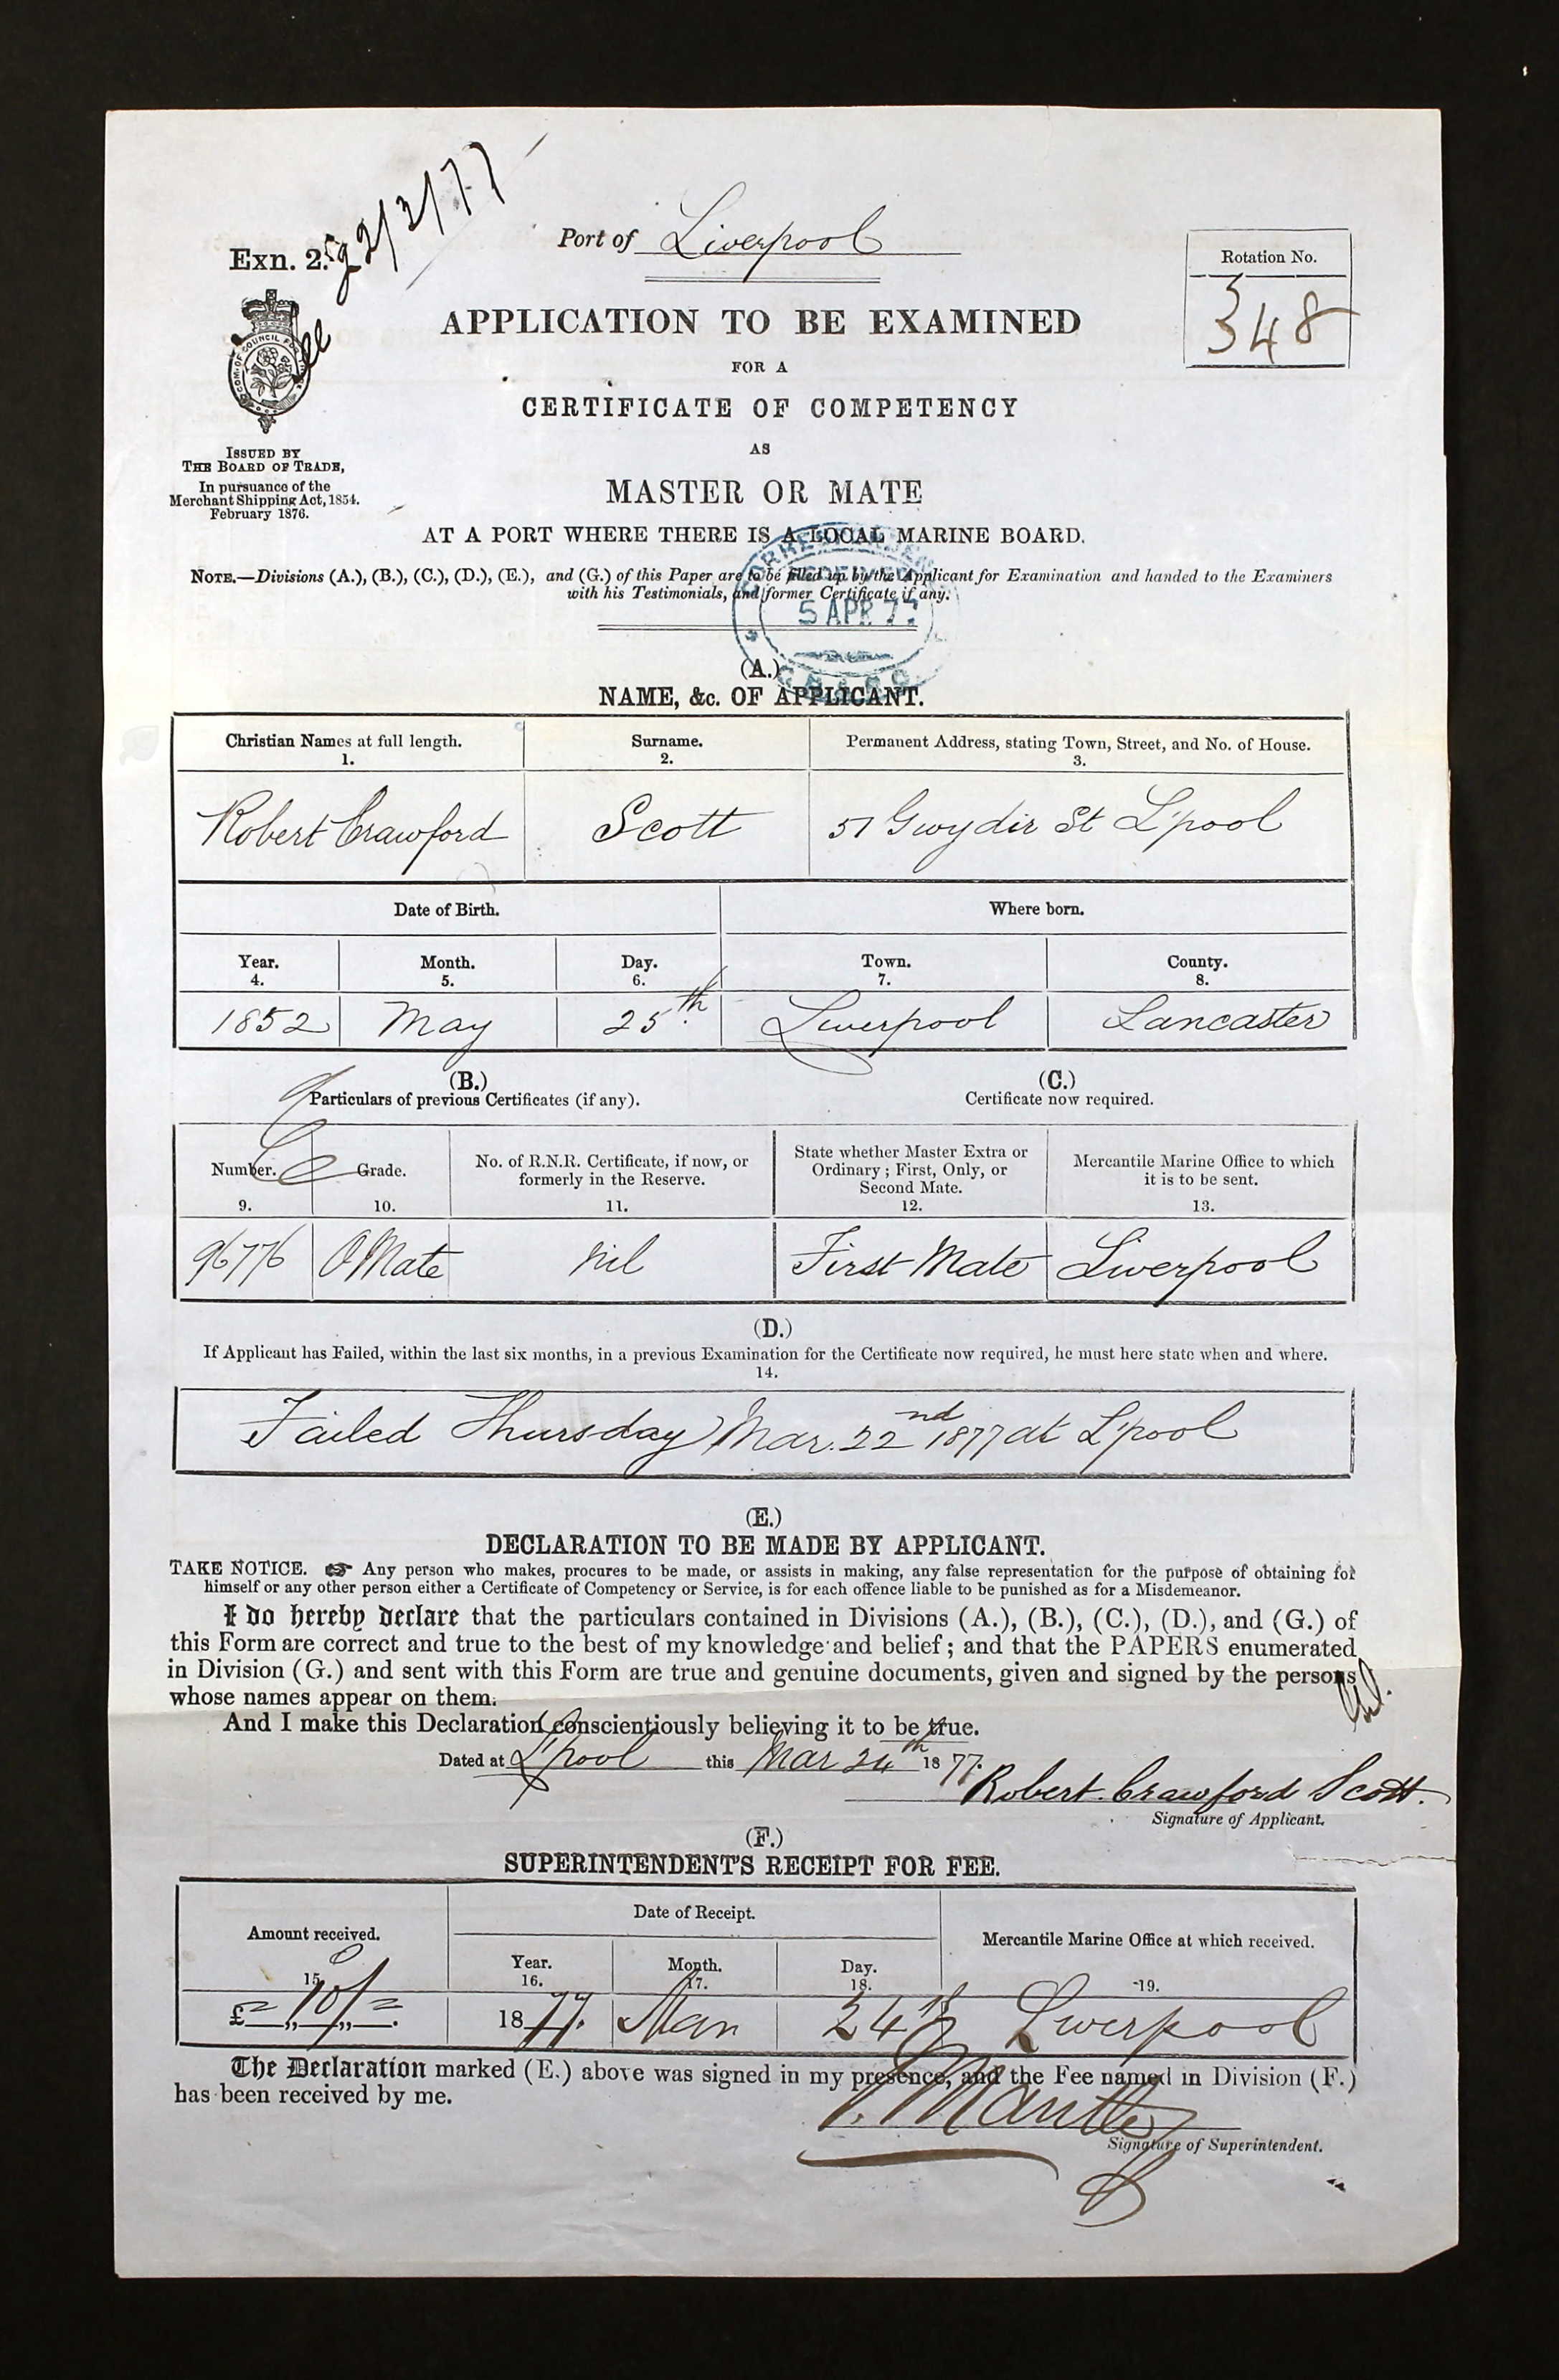 22/3/77
Port of Liverpool
Exn. 2.
Rotation No.
348
APPLICATION TO BE EXAMINED
FOR A
CERTIFICATE OF COMPETENCY
AS
MASTER OR MATE
AT A PORT WHERE THERE IS A LOCAL MARINE BOARD.
ISSUED BY
THE BOARD OF TRADE,
In pursuance of the
Merchant Shipping Act, 1854.
February 1876.
NOTE.—Divisions (A.), (B.), (C.), (D.), (E.), and (G.) of this Paper are to be filled up by the Applicant for Examination and handed to the Examiners
with his Testimonials, and former Certificate if any.
RECEIVED
5 APR 77
(A.)
NAME, &c. OF APPLICANT.
Christian Names at full length. Surname. Permanent Address, stating Town, Street, and No. of House.
1. 2. 3.
Robert Crawford Scott 51 Gwydir St L'pool
Date of Birth. Where born.
Year. Month. Day. Town. County.
4. 5. 6. 7. 8.
1852 May 25th Liverpool Lancaster
(B.) (C.)
Particulars of previous Certificates (if any). Certificate now required.
Number. Grade. No. of R.N.R. Certificate, if now, or formerly in the Reserve. State whether Master Extra or Ordinary; First, Only, or Second Mate. Mercantile Marine Office to which it is to be sent.
9. 10. 11. 12. 13.
96776 O Mate Nil First Mate Liverpool
(D.)
If Applicant has Failed, within the last six months, in a previous Examination for the Certificate now required, he must here state when and where.
14.
Failed Thursday Mar. 22nd 1877 at L'pool
(E.)
DECLARATION TO BE MADE BY APPLICANT.
TAKE NOTICE. ☞ Any person who makes, procures to be made, or assists in making, any false representation for the purpose of obtaining for
himself or any other person either a Certificate of Competency or Service, is for each offence liable to be punished as for a Misdemeanor.
I do hereby declare that the particulars contained in Divisions (A.), (B.), (C.), (D.), and (G.) of
this Form are correct and true to the best of my knowledge and belief; and that the PAPERS enumerated
in Division (G.) and sent with this Form are true and genuine documents, given and signed by the persons
whose names appear on them.
And I make this Declaration conscientiously believing it to be true.
Dated at L'pool this Mar 24th 1877.
Robert Crawford Scott.
Signature of Applicant.
(F.)
SUPERINTENDENT'S RECEIPT FOR FEE.
Amount received. Date of Receipt. Mercantile Marine Office at which received.
Year. Month. Day.
15. 16. 17. 18. 19.
£ = " 10/ " = . 1877. Mar 24th Liverpool
The Declaration marked (E.) above was signed in my presence, and the Fee named in Division (F.)
has been received by me.
Mantle
Signature of Superintendent.